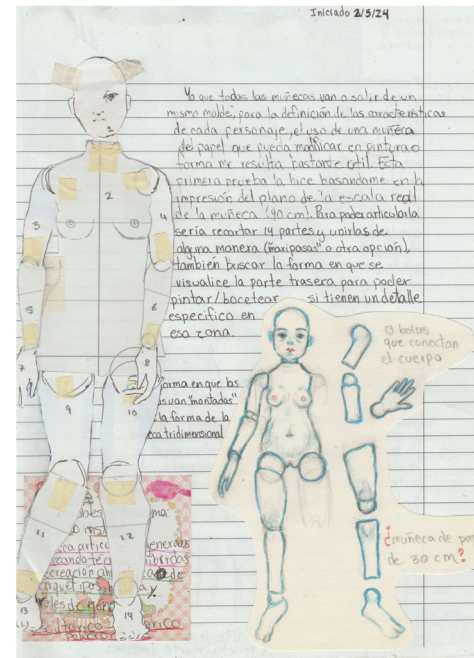 Iniciado 2/5/24
Ya que todas las muñecas van a salir de un
mismo molde, para la definición de las características
de cada personaje, el uso de una muñeca
de papel que pueda modificar en pintura o
forma me resulta bastante útil. Esta
primera prueba la hice basandome en la
impresión del plano de la escala real
de la muñeca (90 cm). Para poder articularla
sería recortar 14 partes y unirlas de
alguna manera (mariposas u otra opción),
también buscar la forma en que se
visualice la parte trasera para poder
pintar/bocetear si tienen un detalle
especifico en
esa zona.
1
2
3
4
5
6
7
8
9
10
11
12
13
14
forma en que las
van "montadas"
la forma de la
tridimensional
13 bolas
que conectan
el cuerpo
¿muñeca de
de 30 cm?